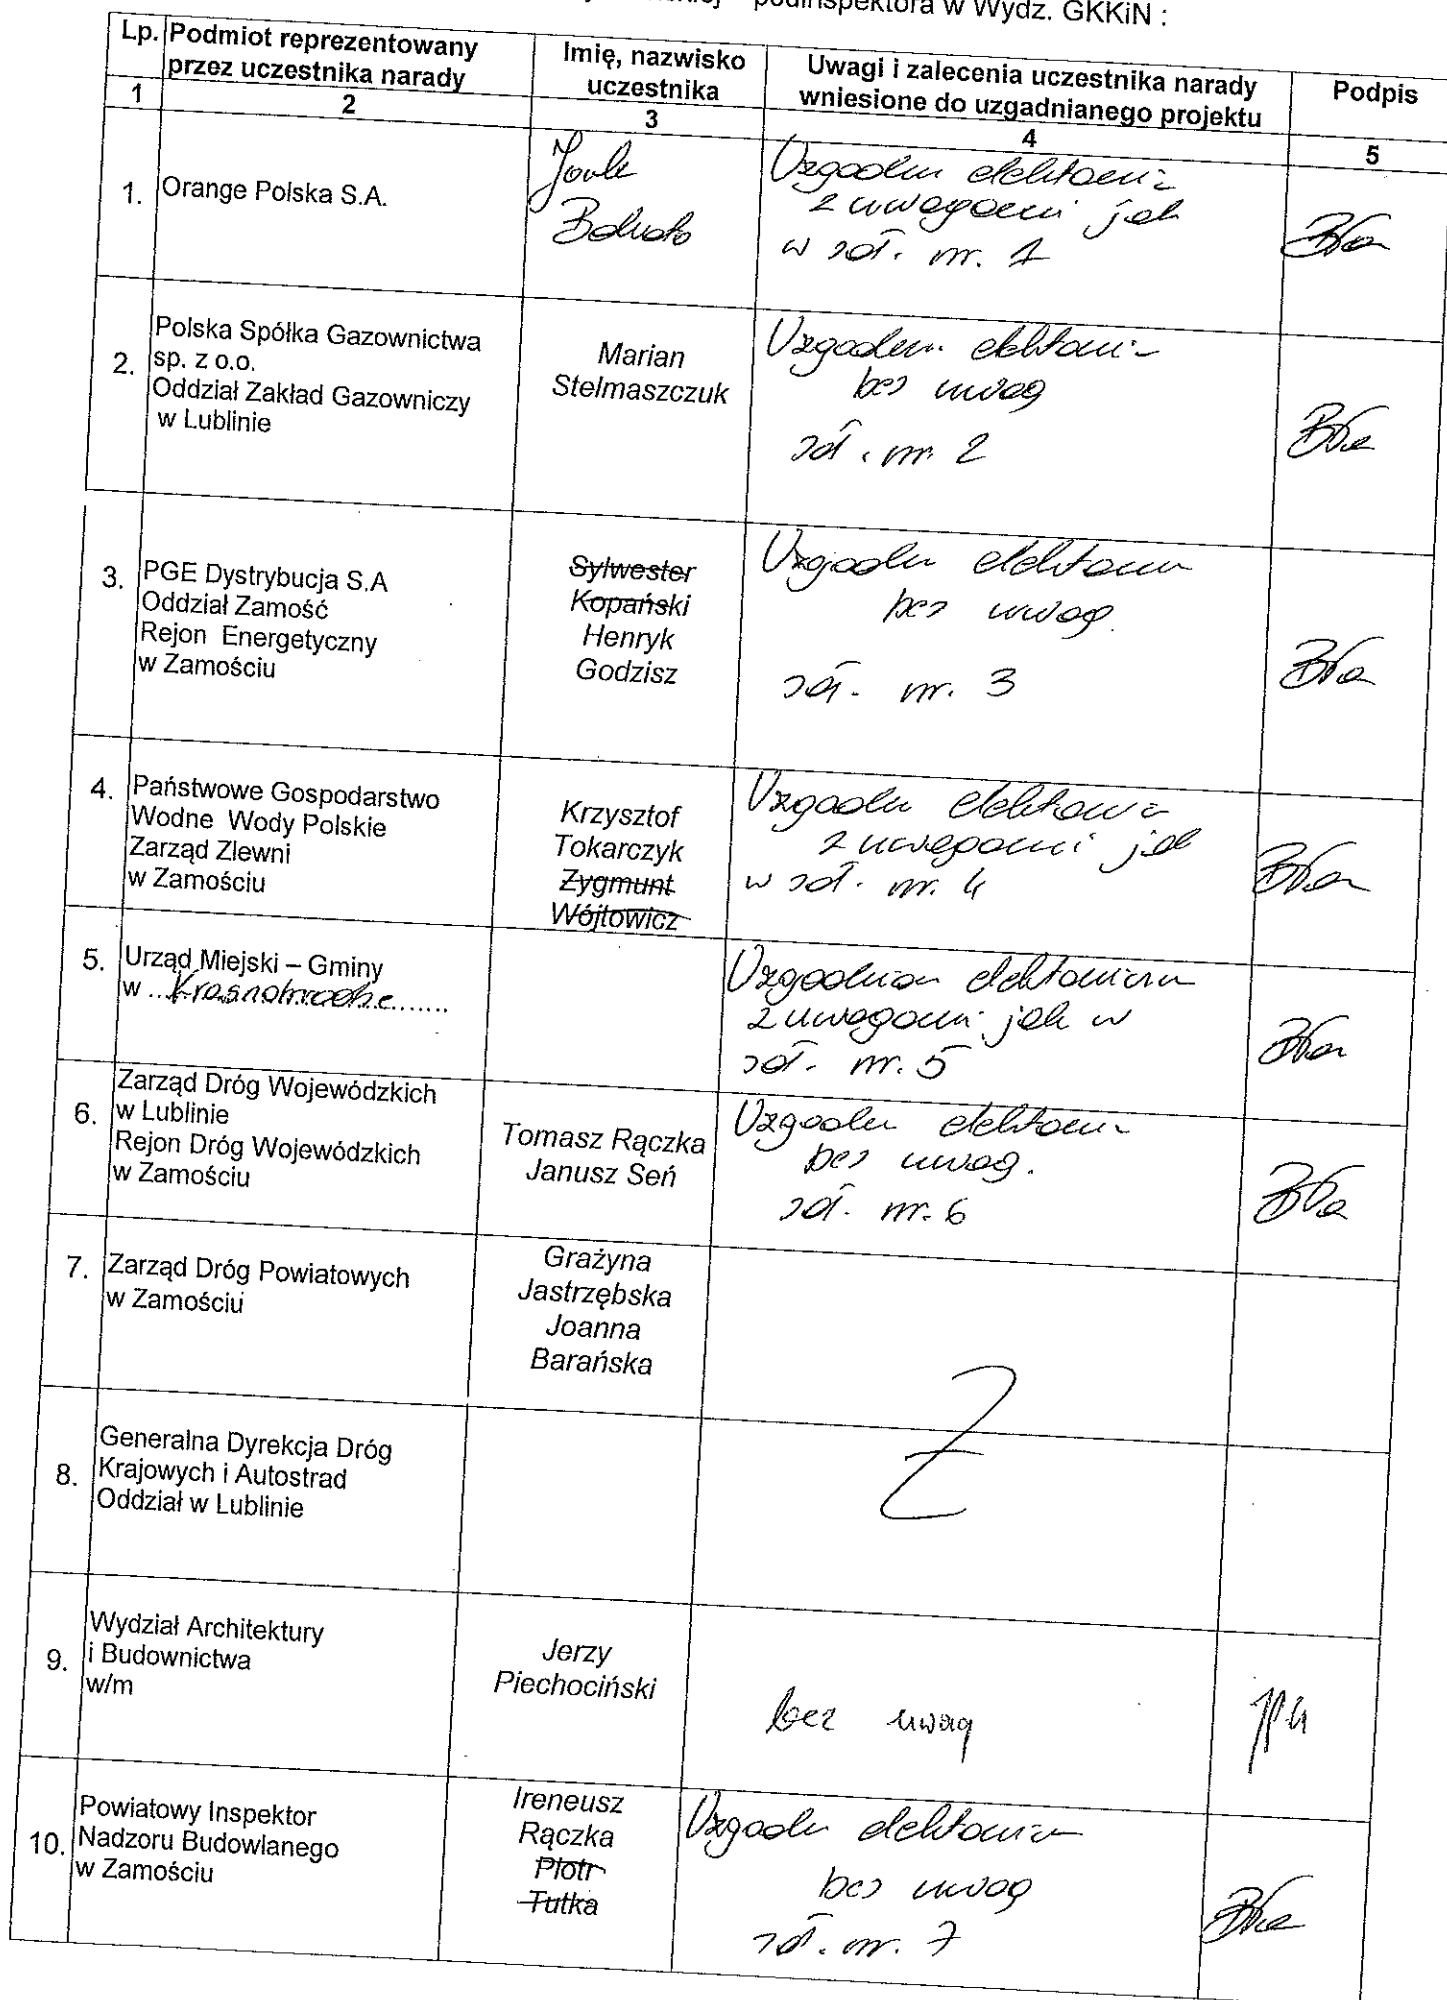 podinspektora w Wydz. GKKiN :
Lp. Podmiot reprezentowany przez uczestnika narady
Imię, nazwisko uczestnika
Uwagi i zalecenia uczestnika narady wniesione do uzgadnianego projektu
Podpis
1 2 3 4 5
1. Orange Polska S.A.
z uwagami jak
w zał. nr. 1
2. Polska Spółka Gazownictwa
sp. z o.o.
Oddział Zakład Gazowniczy
w Lublinie
Marian
Stelmaszczuk
bez uwag
zał. nr. 2
3. PGE Dystrybucja S.A
Oddział Zamość
Rejon Energetyczny
w Zamościu
Sylwester
Kopański
Henryk
Godzisz
bez uwag.
zał. nr. 3
4. Państwowe Gospodarstwo
Wodne Wody Polskie
Zarząd Zlewni
w Zamościu
Krzysztof
Tokarczyk
Zygmunt
Wójtowicz
z uwagami jak
w zał. nr. 4
5. Urząd Miejski – Gminy
w ..........
z uwagami jak w
zał. nr. 5
6. Zarząd Dróg Wojewódzkich
w Lublinie
Rejon Dróg Wojewódzkich
w Zamościu
Tomasz Rączka
Janusz Seń
bez uwag.
zał. nr. 6
7. Zarząd Dróg Powiatowych
w Zamościu
Grażyna
Jastrzębska
Joanna
Barańska
8. Generalna Dyrekcja Dróg
Krajowych i Autostrad
Oddział w Lublinie
9. Wydział Architektury
i Budownictwa
w/m
Jerzy
Piechociński
bez uwag
10. Powiatowy Inspektor
Nadzoru Budowlanego
w Zamościu
Ireneusz
Rączka
Piotr
Tutka
bez uwag
zał. nr. 7